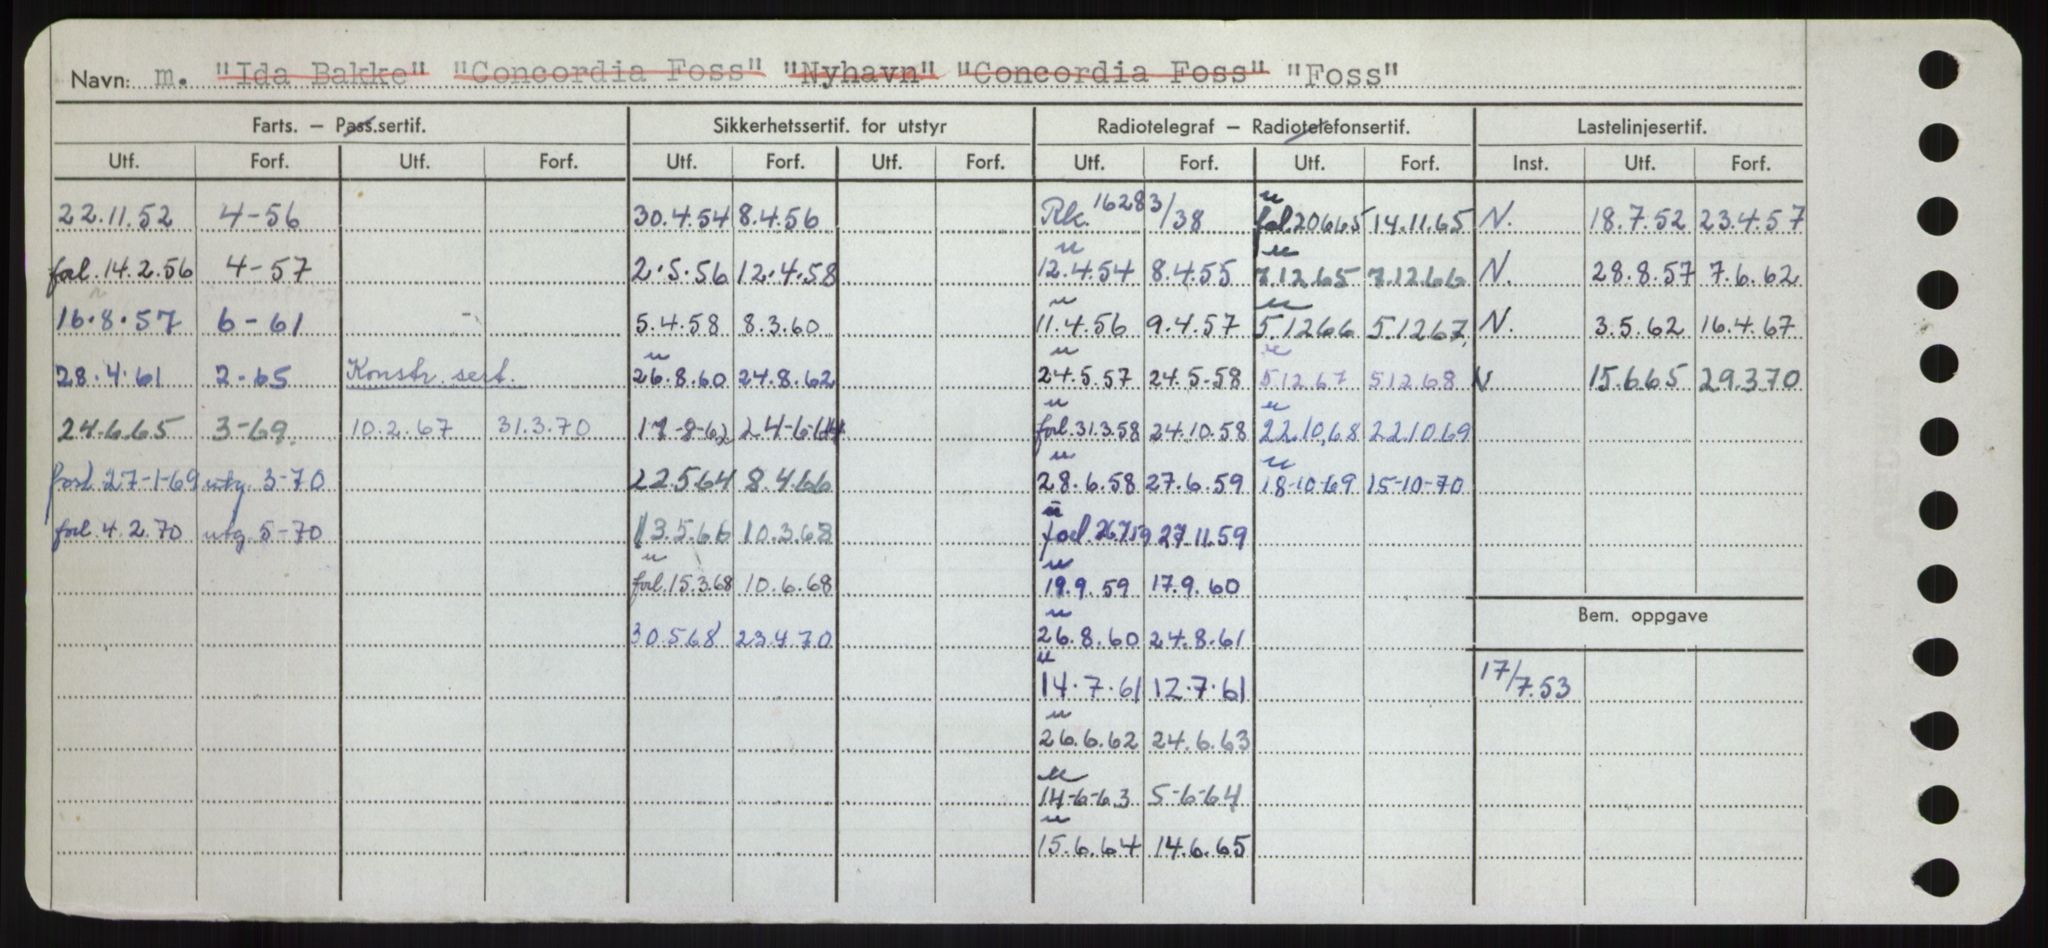 Navn: m. "Ida Bakke" "Concordia Foss" "Nyhavn" "Concordia Foss" "Foss"
Farts. – Pass.sertif. Sikkerhetssertif. for utstyr Radiotelegraf – Radiotelefonsertif. Lastelinjesertif.
Utf. Forf. Utf. Forf. Utf. Forf. Utf. Forf. Utf. Forf. Utf. Forf. Inst. Utf. Forf.
22.11.52 4-56 30.4.54 8.4.56 Rk. 16283/38 u fol.20665 14.11.65 N. 18.7.52 23.4.57
fol.14.2.56 4-57 2.5.56 12.4.58 u 12.4.54 8.4.55 u 7.12.65 7.12.66 N. 28.8.57 7.6.62
16.8.57 6-61 5.4.58 8.3.60 u 11.4.56 9.4.57 u 5.1266 5.1267. N. 3.5.62 16.4.67
28.4.61 2-65 Konstr. sert. u 26.8.60 24.8.62 u 24.5.57 24.5.58 u 5.12.67 5.12.68 N 15.6.65 29.3.70
24.6.65 3-69. 10.2.67 31.3.70 17-8-62 24-6-64 u fol.31.3.58 24.10.58 u 22.10.68 22.10.69
forl 27-1-69 utg. 3-70 22.5.64 8.4.66 u 28.6.58 27.6.59 u 18-10-69 15-10-70
fol.4.2.70 utg. 5-70 13.5.66 10.3.68 u fol.26.7.59 27.11.59
u fol.15.3.68 10.6.68 u 19.9.59 17.9.60
30.5.68 23.4.70 u 26.8.60 24.8.61
Bem. oppgave
u 14.7.61 12.7.61 17/7.53
u 26.6.62 24.6.63
u 14-6-63 5-6-64
u 15.6.64 14.6.65